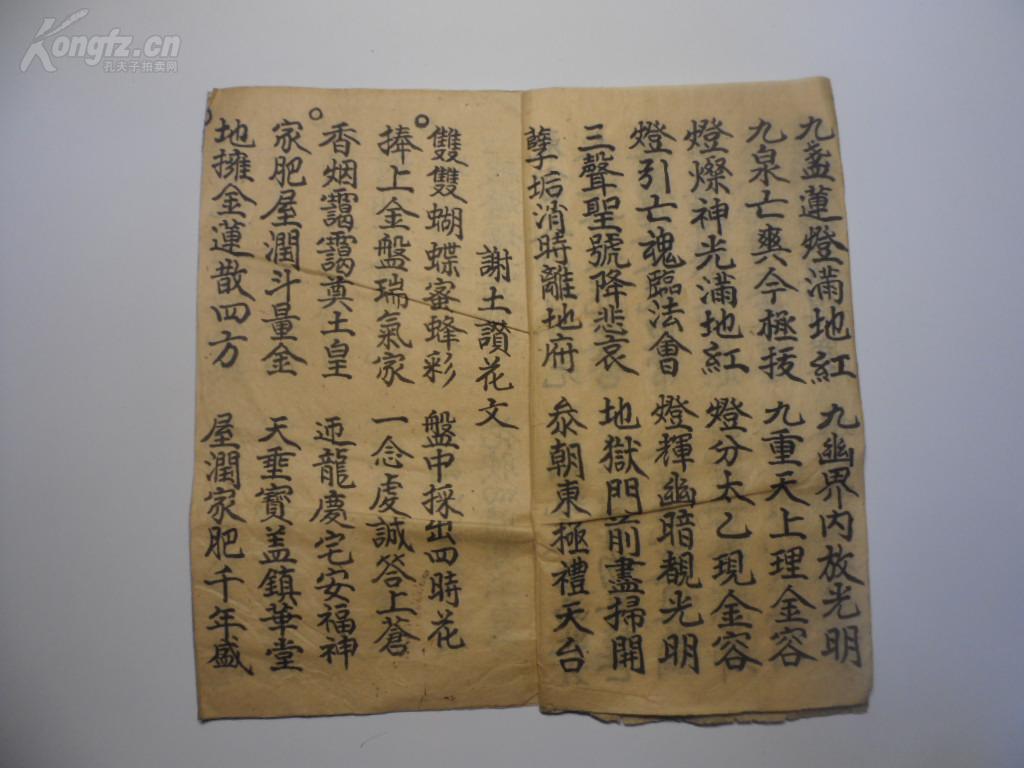 Kongfz.cn
孔夫子拍卖网
九盞蓮燈滿地紅 九幽界内放光明
九泉亡爽今極技 九重天上理金容
燈燦神光滿地紅 燈分太乙現金容
燈引亡魂臨法會 燈輝幽暗覩光明
三聲聖號降悲哀 地獄門前盡掃開
孽垢消時離地府 叅朝東極禮天台
謝土讚花文
雙雙蝴蝶審蜂彩 盤中採出四時花
捧上金盤瑞氣家 一念虔誠答上蒼
香烟靄靄奠土皇 迊龍慶宅安福神
家肥屋潤斗量金 天垂寶盖鎮華堂
地擁金蓮散四方 屋潤家肥千年盛